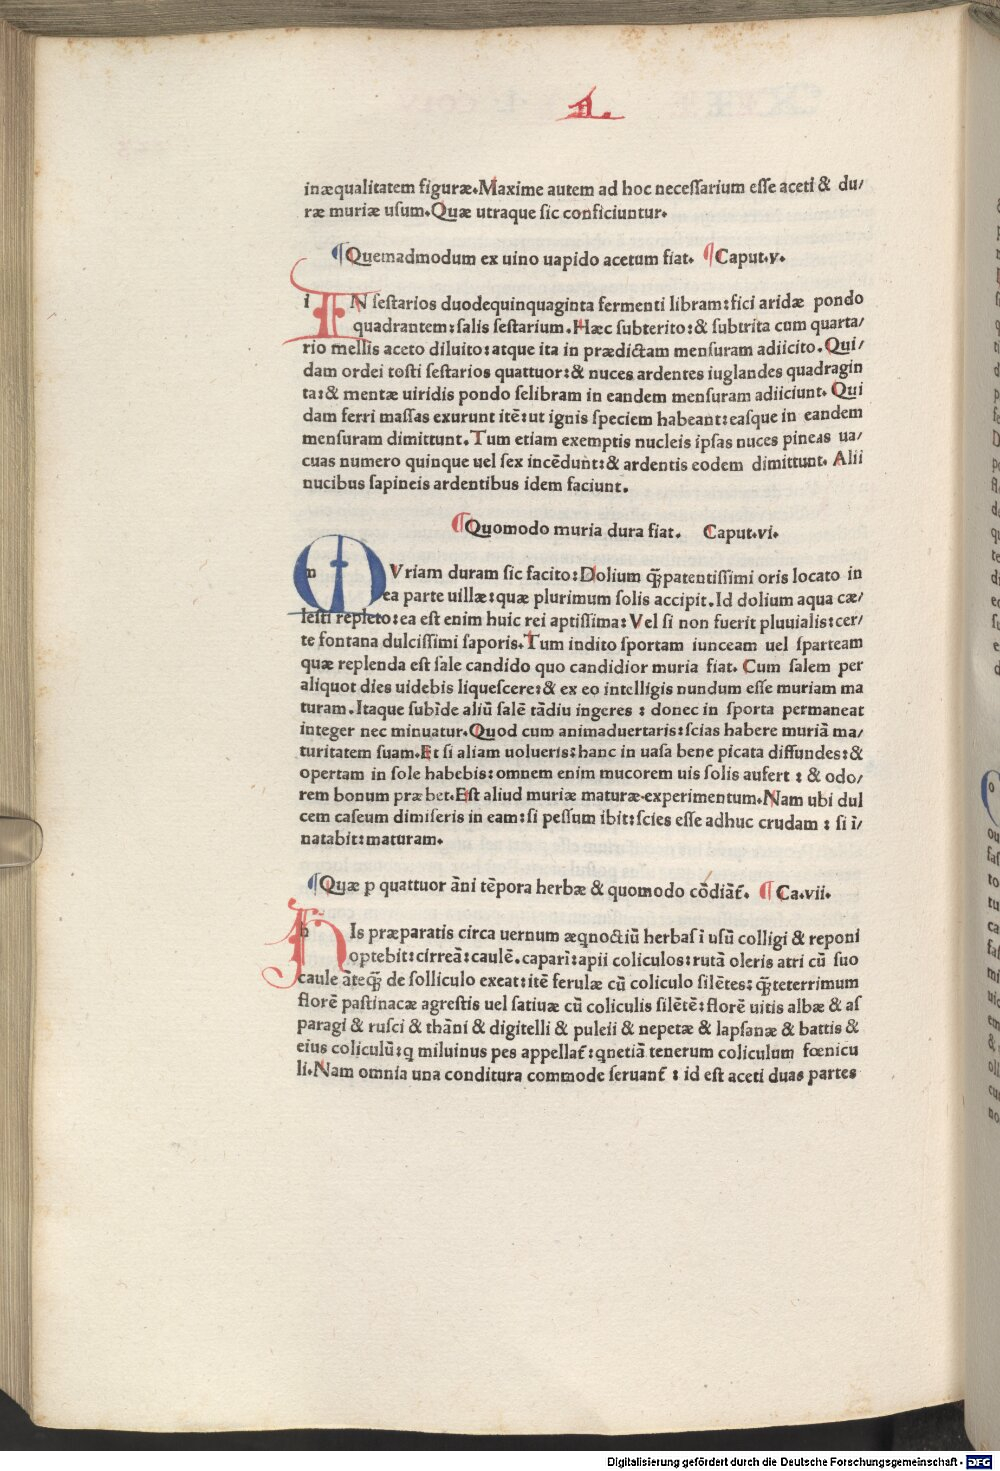 L.
inæqualitatem figuræ.Maxime autem ad hoc neceſſarium eſſe aceti & du/
ræ muriæ uſum.Quæ utraque ſic conficiuntur.
¶Quemadmodum ex uino uapido acetum fiat. ¶Caput.v.
IN ſeſtarios duodequinquaginta fermenti libram:fici aridæ pondo
quadrantem:ſalis ſeſtarium.Hæc ſubterito:& ſubtrita cum quarta/
rio mellis aceto diluito:atque ita in prædictam menſuram adiicito.Qui/
dam ordei toſti ſeſtarios quattuor:& nuces ardentes iuglandes quadragin
ta:& mentæ uiridis pondo ſelibram in eandem menſuram adiiciunt.Qui
dam ferri maſſas exurunt itē:ut ignis ſpeciem habeant:eaſque in eandem
menſuram dimittunt.Tum etiam exemptis nucleis ipſas nuces pineas ua/
cuas numero quinque uel ſex incēdunt:& ardentis eodem dimittunt.Alii
nucibus ſapineis ardentibus idem faciunt.
¶Quomodo muria dura fiat. Caput.vi.
MVriam duram ſic facito:Dolium q̄ꝫpatentiſſimi oris locato in
ea parte uillæ:quæ plurimum ſolis accipit.Id dolium aqua cæ/
leſti repleto:ea eſt enim huic rei aptiſſima:Vel ſi non fuerit pluuialis:cer/
te fontana dulciſſimi ſaporis.Tum indito ſportam iunceam uel ſparteam
quæ replenda eſt ſale candido quo candidior muria fiat.Cum ſalem per
aliquot dies uidebis liqueſcere:& ex eo intelligis nundum eſſe muriam ma
turam.Itaque ſubīde aliū ſalē tādiu ingeres : donec in ſporta permaneat
integer nec minuatur.Quod cum animaduertaris:ſcias habere muriā ma/
turitatem ſuam.Et ſi aliam uolueris:hanc in uaſa bene picata diffundes:&
opertam in ſole habebis:omnem enim mucorem uis ſolis aufert : & odo/
rem bonum præbet.Eſt aliud muriæ maturæ experimentum.Nam ubi dul
cem caſeum dimiſeris in eam:ſi peſſum ibit:ſcies eſſe adhuc crudam : ſi ī/
natabit:maturam.
¶Quæ p quattuor āni tēpora herbæ & quomodo cōdiāt̄. ¶Ca.vii.
HIs præparatis circa uernum æqnoctiū herbaſ ī uſū colligi & reponi
optebit:cirreā:caulē.caparī:apii coliculos:rutā oleris atri cū ſuo
caule āteq̄ꝫ de folliculo exeat:itē ferulæ cū coliculo ſilētes:q̄ꝫteterrimum
florē paſtinacæ agreſtis uel ſatiuæ cū coliculis ſilētē:florē uitis albæ & aſ
paragi & ruſci & thāni & digitelli & puleii & nepetæ & lapſanæ & battis &
eius coliculū:q miluinus pes appellat̄:qnetiā tenerum coliculum fœnicu
li.Nam omnia una conditura commode ſeruant̄ : id eſt aceti duas partes
Digitalisierung gefördert durch die Deutsche Forschungsgemeinschaft - DFG